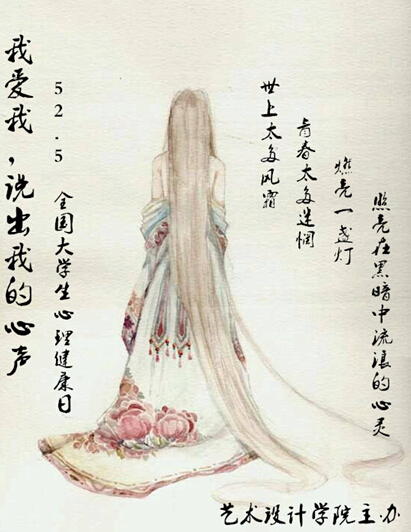 我爱我，说出我的心声
52.5 全国大学生心理健康日
世上太多风霜
青春太多迷惘
燃亮一盏灯
照亮在黑暗中流浪的心灵
艺术设计学院主办